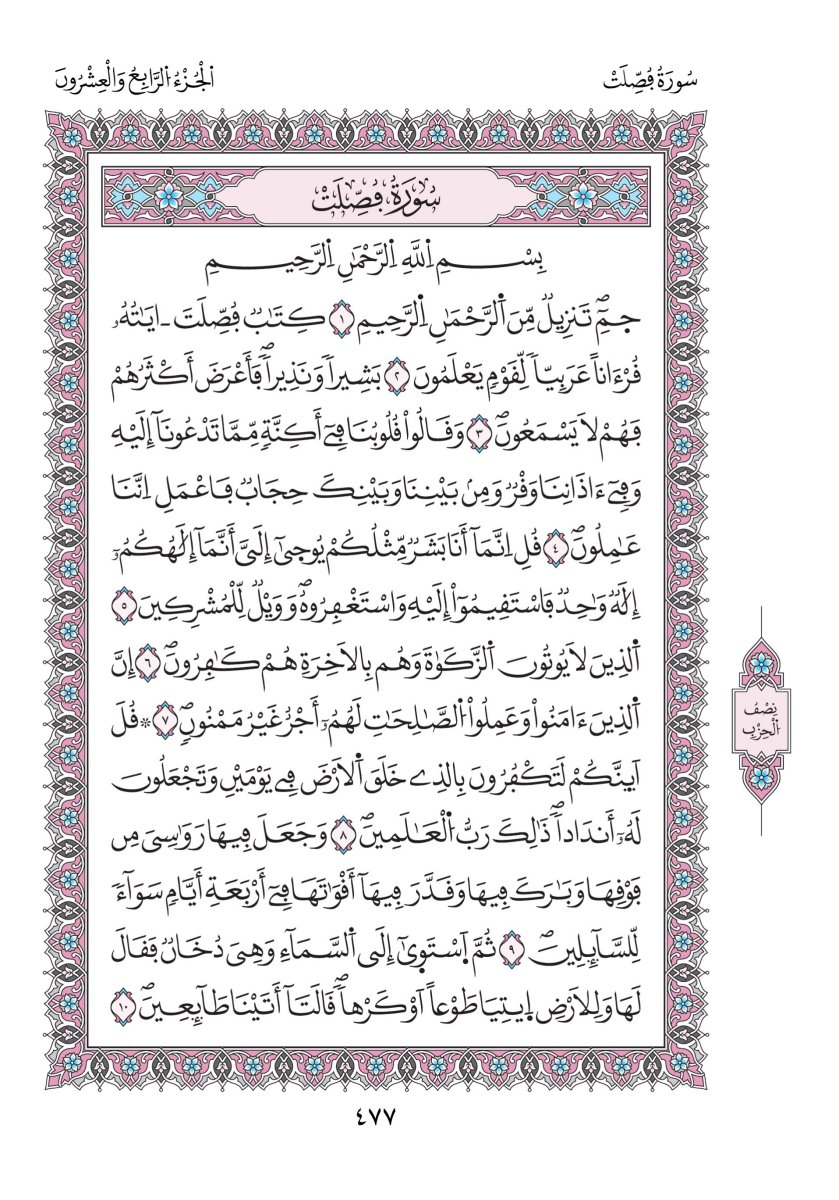 سُورَةُ فُصِّلَتْ
اَلْجُزْءُ اَلرَّابِعُ وَالْعِشْرُونَ
سُورَةُ فُصِّلَتْ
بِسْمِ اِللَّهِ اِلرَّحْمَٰنِ اِلرَّحِيمِ
حٓمِٓۖ تَنزِيلٞ مِّنَ اَلرَّحْمَٰنِ اِلرَّحِيمِ ١ كِتَٰبٞ فُصِّلَتَ اٰيَٰتُهُۥ
قُرْءَاناً عَرَبِيّاٗ لِّقَوْمٖ يَعْلَمُونَ ٢ بَشِيراٗ وَنَذِيراٗۖ فَأَعْرَضَ أَكْثَرُهُمْ
فَهُمْ لَا يَسْمَعُونَۖ ٣ وَقَالُواْ قُلُوبُنَا فِےٓ أَكِنَّةٖ مِّمَّا تَدْعُونَآ إِلَيْهِ
وَفِےٓ ءَاذَانِنَا وَقْرٞ وَمِنۢ بَيْنِنَا وَبَيْنِكَ حِجَابٞ فَاعْمَلِ اِنَّنَا
عَٰمِلُونَۖ ٤ قُلِ اِنَّمَآ أَنَا بَشَرٞ مِّثْلُكُمْ يُوحَيٰٓ إِلَيَّ أَنَّمَآ إِلَٰهُكُمُۥٓ
إِلَٰهٞ وَٰحِدٞ فَاسْتَقِيمُوٓاْ إِلَيْهِ وَاسْتَغْفِرُوهُۖ وَوَيْلٞ لِّلْمُشْرِكِينَ ٥
اَلذِينَ لَا يُوتُونَ اَلزَّكَوٰةَ وَهُم بِالَاخِرَةِ هُمْ كَٰفِرُونَۖ ٦ إِنَّ
اَلذِينَ ءَامَنُواْ وَعَمِلُواْ اُلصَّٰلِحَٰتِ لَهُمُۥٓ أَجْرٌ غَيْرُ مَمْنُونٖۖ ٧ ۞ قُلَ
اَي۪نَّكُمْ لَتَكْفُرُونَ بِالذِے خَلَقَ اَلَارْضَ فِے يَوْمَيْنِ وَتَجْعَلُونَ
لَهُۥٓ أَندَاداٗۖ ذَٰلِكَ رَبُّ اُلْعَٰلَمِينَۖ ٨ وَجَعَلَ فِيهَا رَوَٰسِيَ مِن
فَوْقِهَا وَبَٰرَكَ فِيهَا وَقَدَّرَ فِيهَآ أَقْوَٰتَهَا فِےٓ أَرْبَعَةِ أَيَّامٖ سَوَآءٗ
لِّلسَّآئِلِينَۖ ٩ ثُمَّ اَسْتَوَيٰٓ إِلَي اَلسَّمَآءِ وَهِيَ دُخَانٞ فَقَالَ
لَهَا وَلِلَارْضِ اِيتِيَا طَوْعاً اَوْ كَرْهاٗۖ قَالَتَآ أَتَيْنَا طَآئِعِينَۖ ١٠
نِصْفُ
اُلْحِزْبِ
٤٧٧